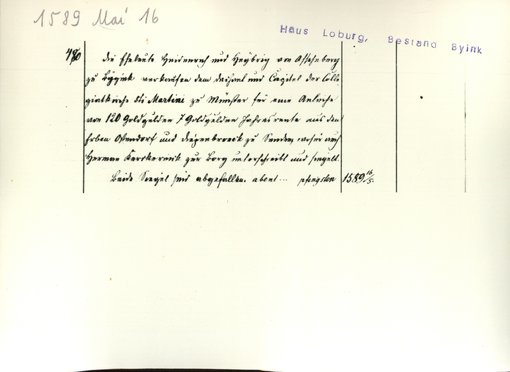 1589 Mai 16
Haus Loburg, Bestand Byink
480
die Eheleute Heidenreich und Heylwig von Asscheberg
zu Byink verkaufen dem Dechant und Capitel der Colle
giatkirche Sti Martini zu Münster für eine Anleihe
von 120 Goldgulden 7 Goldgulden Jahresrente aus den
Erben Ostendorf und Diepenbrock zu Senden, wofür auch
Herman zur Borg unterschreibt und siegelt.
Beide Siegel sind abgefallen. abent ... pfingsten
1589 16/5.